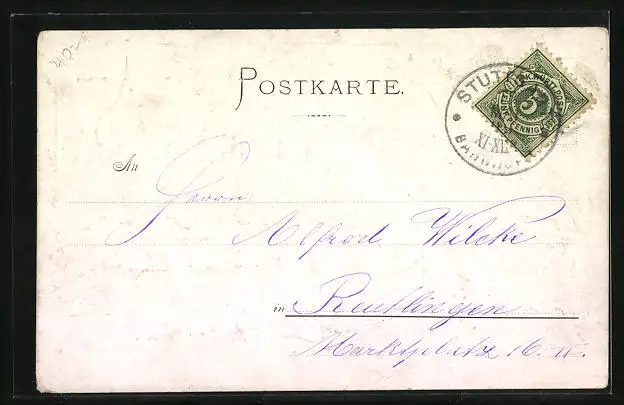 40,-
POSTKARTE.
STUTT
BAHNHOF
5
PFENNIG
An
Herrn
Alfred Wilcke
in Reutlingen
Marktplatz 16. II.